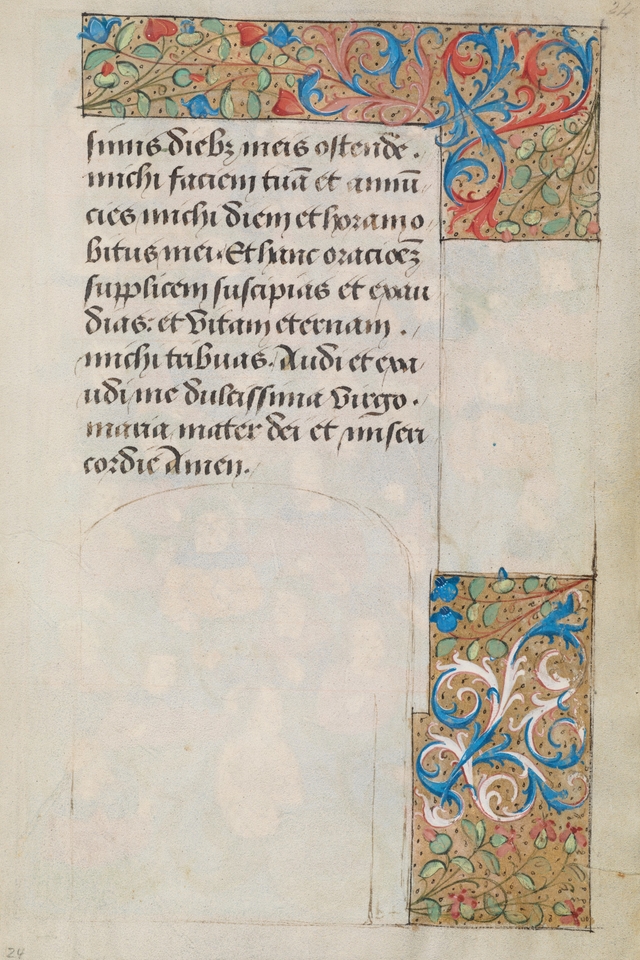 simis dieb⁊ meis ostende.
michi faciem tuā et annū
cies michi diem et horam o
bitus mei. Et hanc oracioēʒ
supplicem suscipias et exau
dias: et vitam eternam.
michi tribuas. Audi et exa
udi me dulcissima virgo.
maria mater dei et miseri
cordie Amen.
24